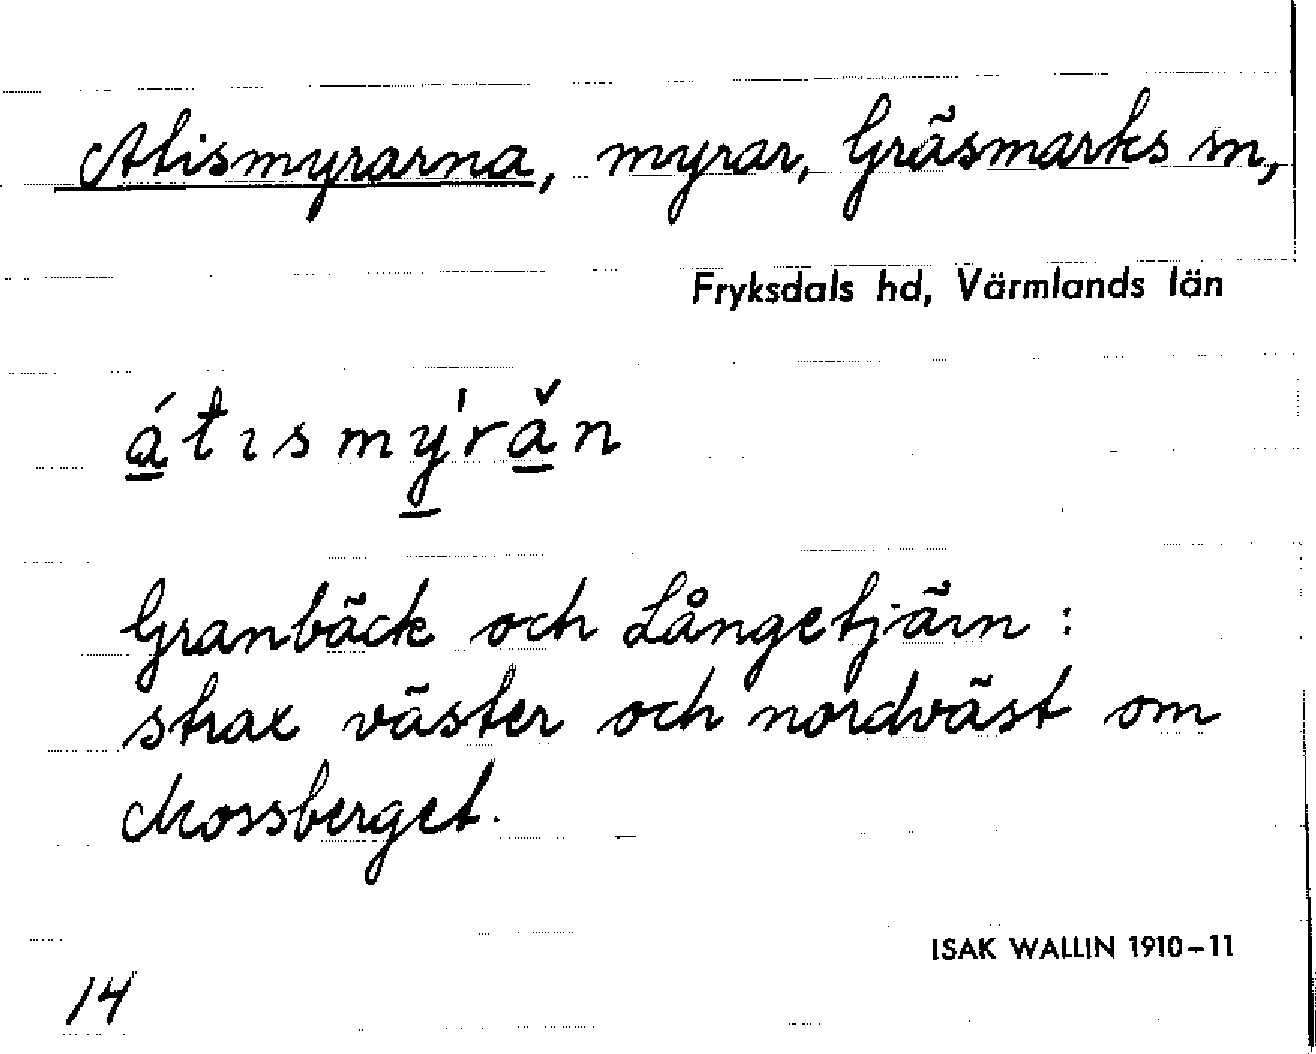 Atismyrarna, myrar, Gräsmarks sn,
Fryksdals hd, Värmlands län
á̲tısmy̲̍rǎ̲n
Granbäck och Långetjärn:
strax väster och nordväst om
Mossberget.
ISAK WALLIN 1910–11
14